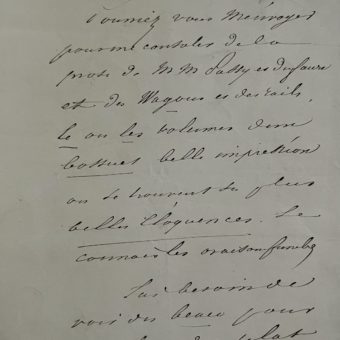 Pourriez vous m'envoyer
pour me consoler de la
prose de M M Passy et Dufaure
et des Wagons et des rails,
le ou les volumes d'une
bossuet belle impression
ou se trouvent ses plus
belles Éloquences. Je
connais les oraisons funebres
J'ai besoin de
voir du beau pour